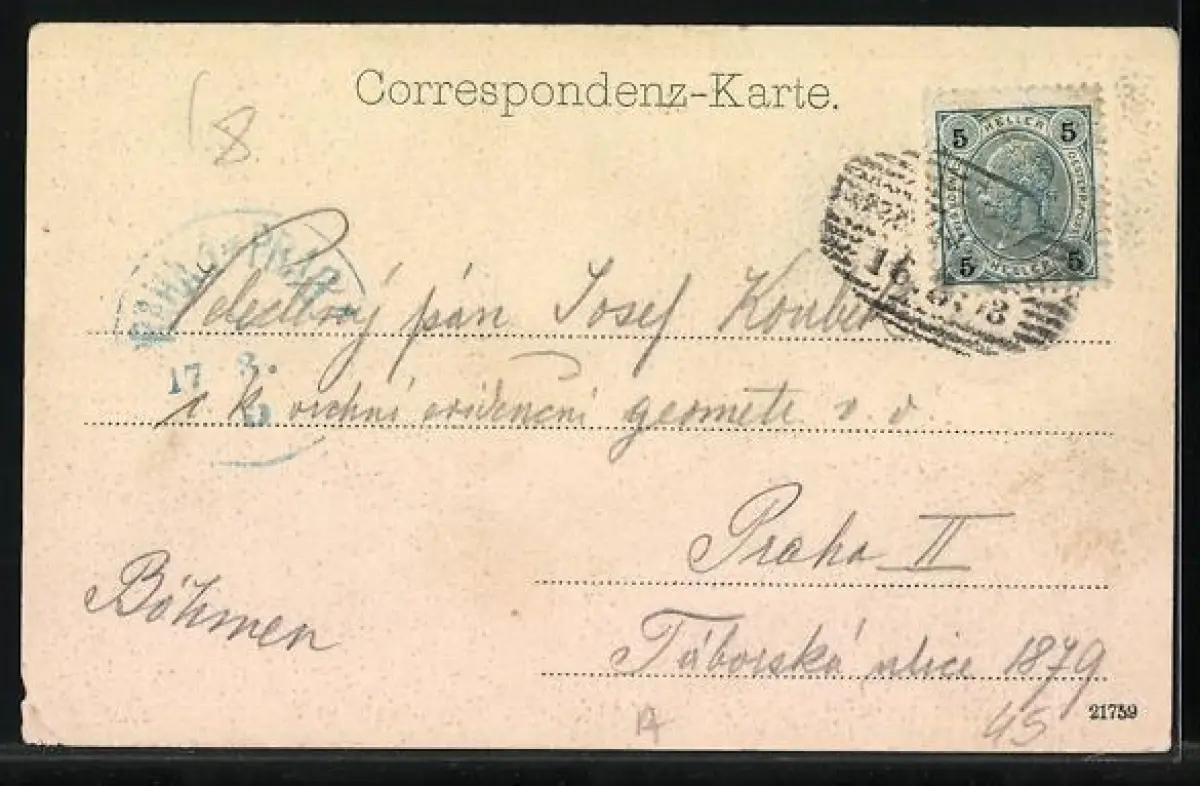 Correspondenz-Karte.
5 HELLER 5
5 HELLER 5
16. 8. 03
8
PRAHA PRAG
17 8.
pán Josef
c. k. vrchní evidenční geometr v. v.
Praha II
Böhmen
Táborská ulice 1879
45
21759